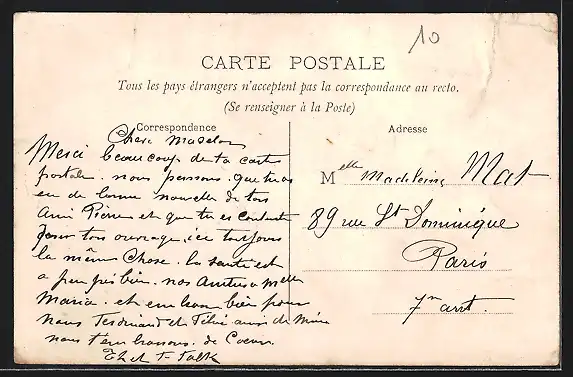 10
CARTE POSTALE
Tous les pays étrangers n'acceptent pas la correspondance au recto.
(Se renseigner à la Poste)
Correspondance
Adresse
Chere
Merci beaucoup de ta carte
postale. nous pensons. que tu as
eu de bonne nouvelle de ton
Ami Pierre et que tu es contente
pour ton ouvrage, ici toujours
la même chose. la santé est
a peu près bien. nos
Maria. et bien pour
nous Ferdinand et de même
nous t'embrassons. de Coeur.
Melle Madeleine Mat
89 rue St Dominique
Paris
7me arrt.